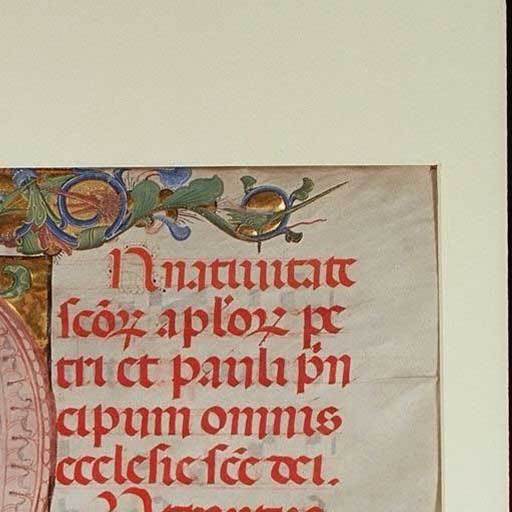 In natiuitate
sc̄oꝝ apl'oꝝ pe
tri et pauli p̄in
cipum omnis
ecclesie sc̄e dei.